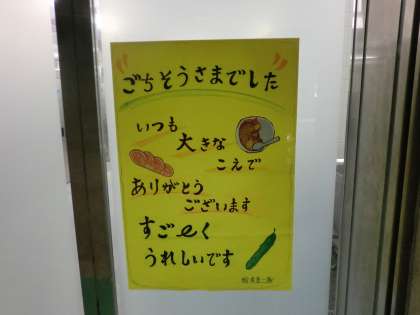 "ごちそうさまでした"
いつも
大きな
こえで
ありがとう
ございます
すご〜く
うれしいです